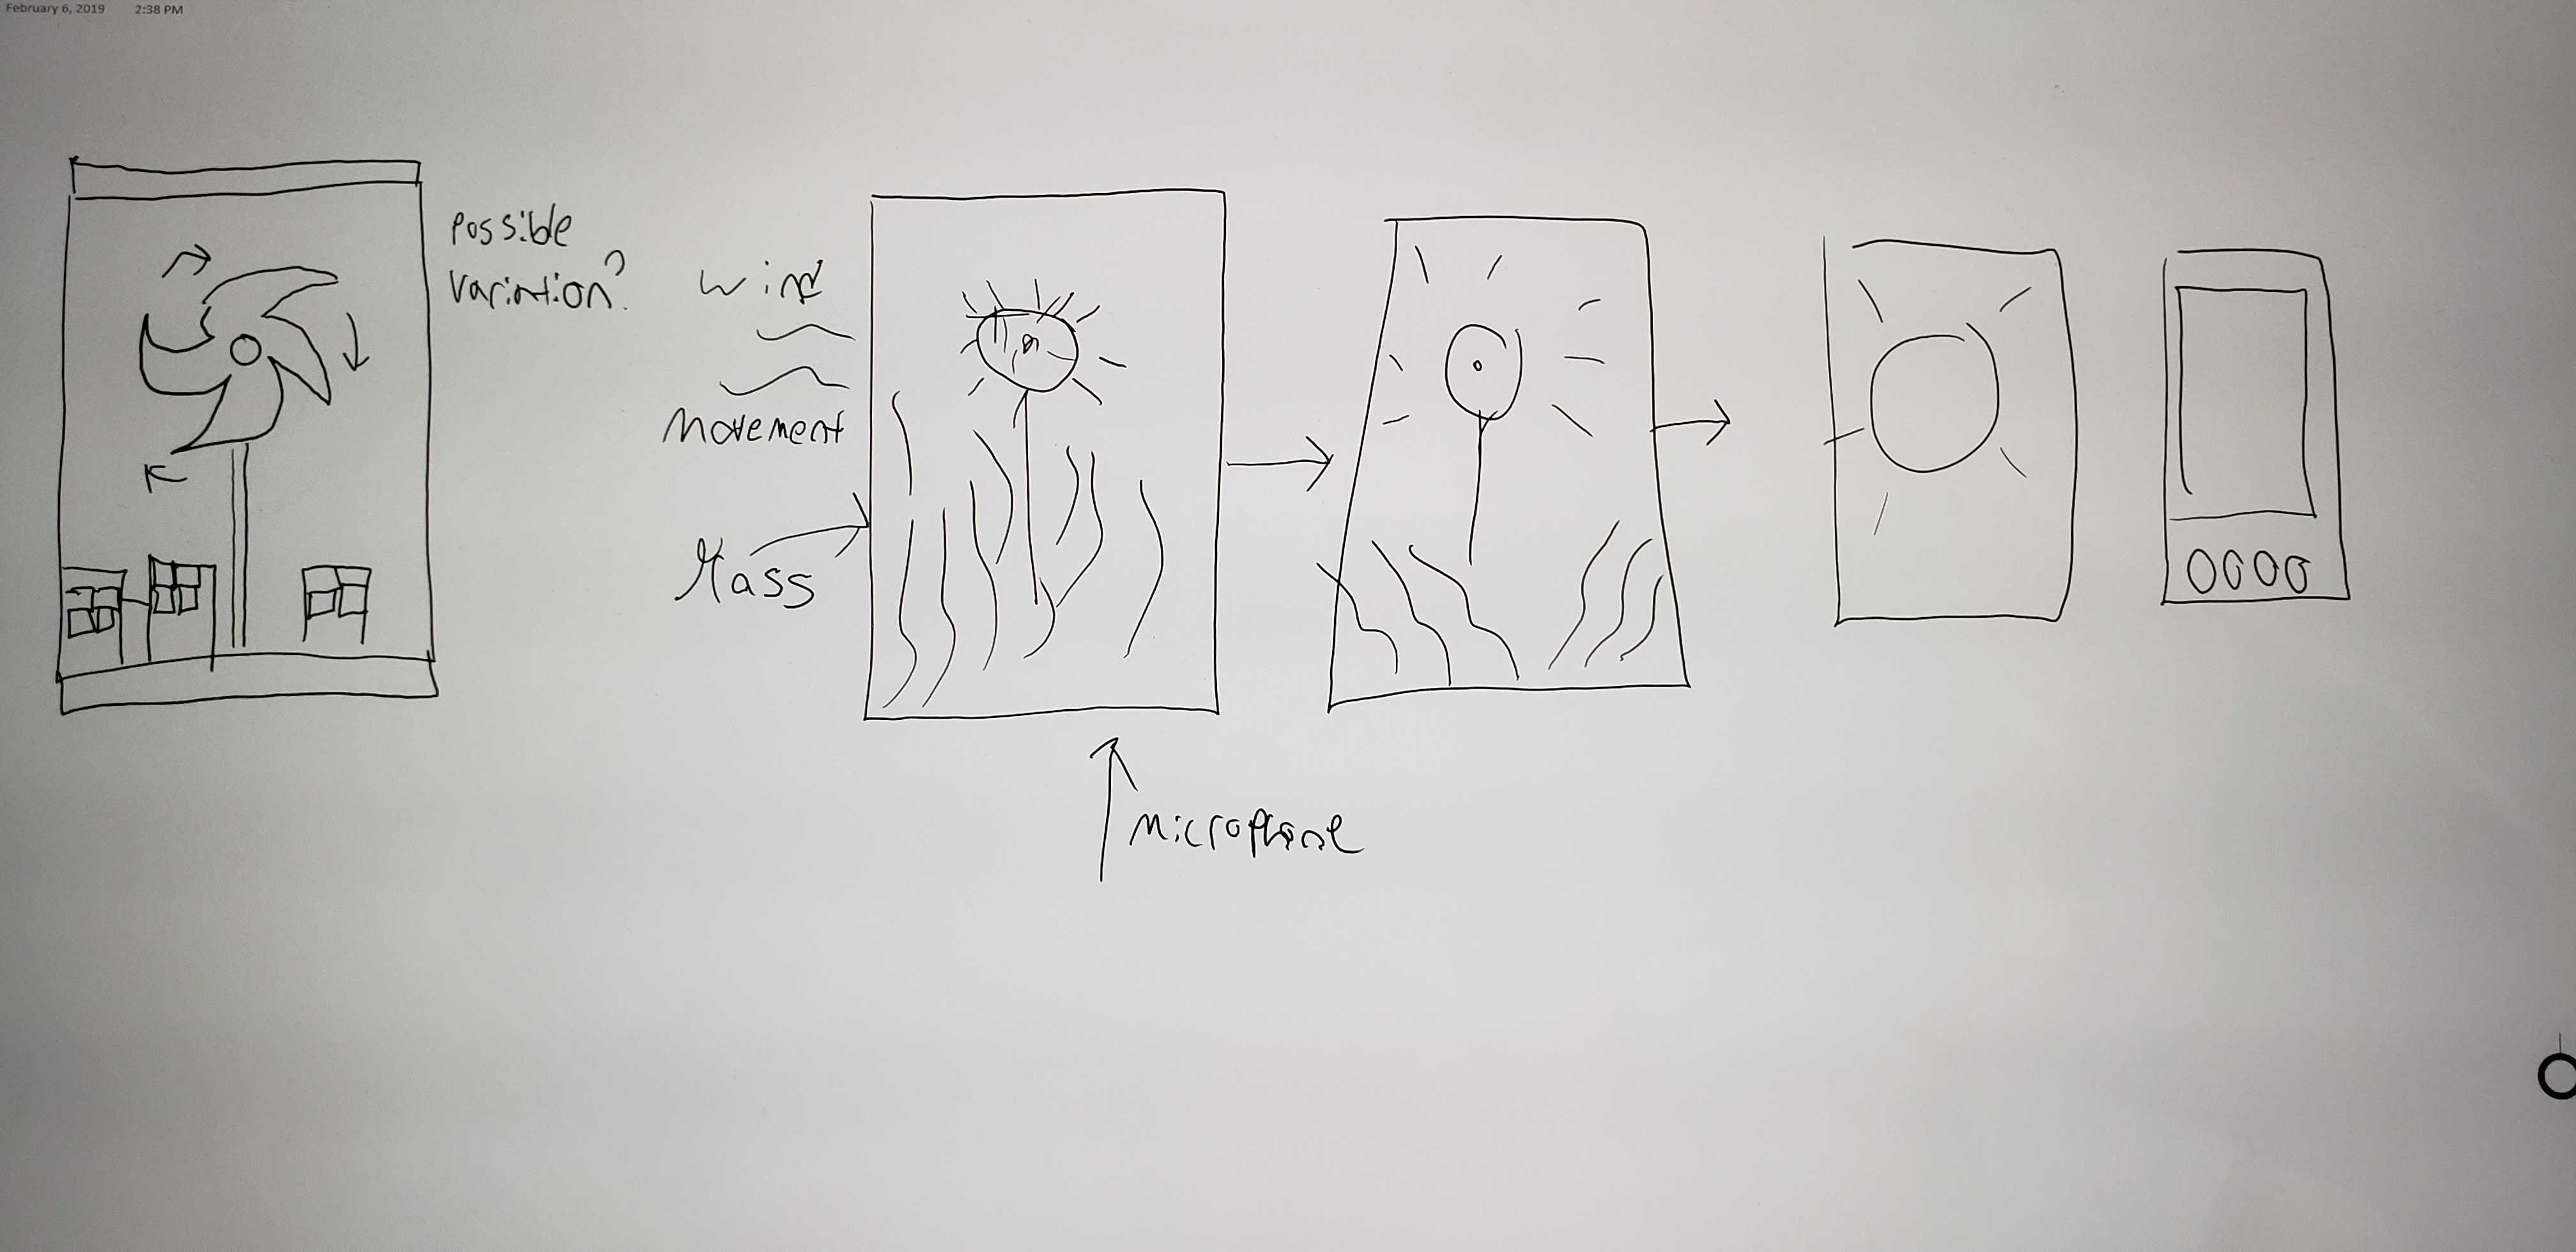 February 6, 2019 2:38 PM
Possible
Variation?
Wind
Movement
Microphone